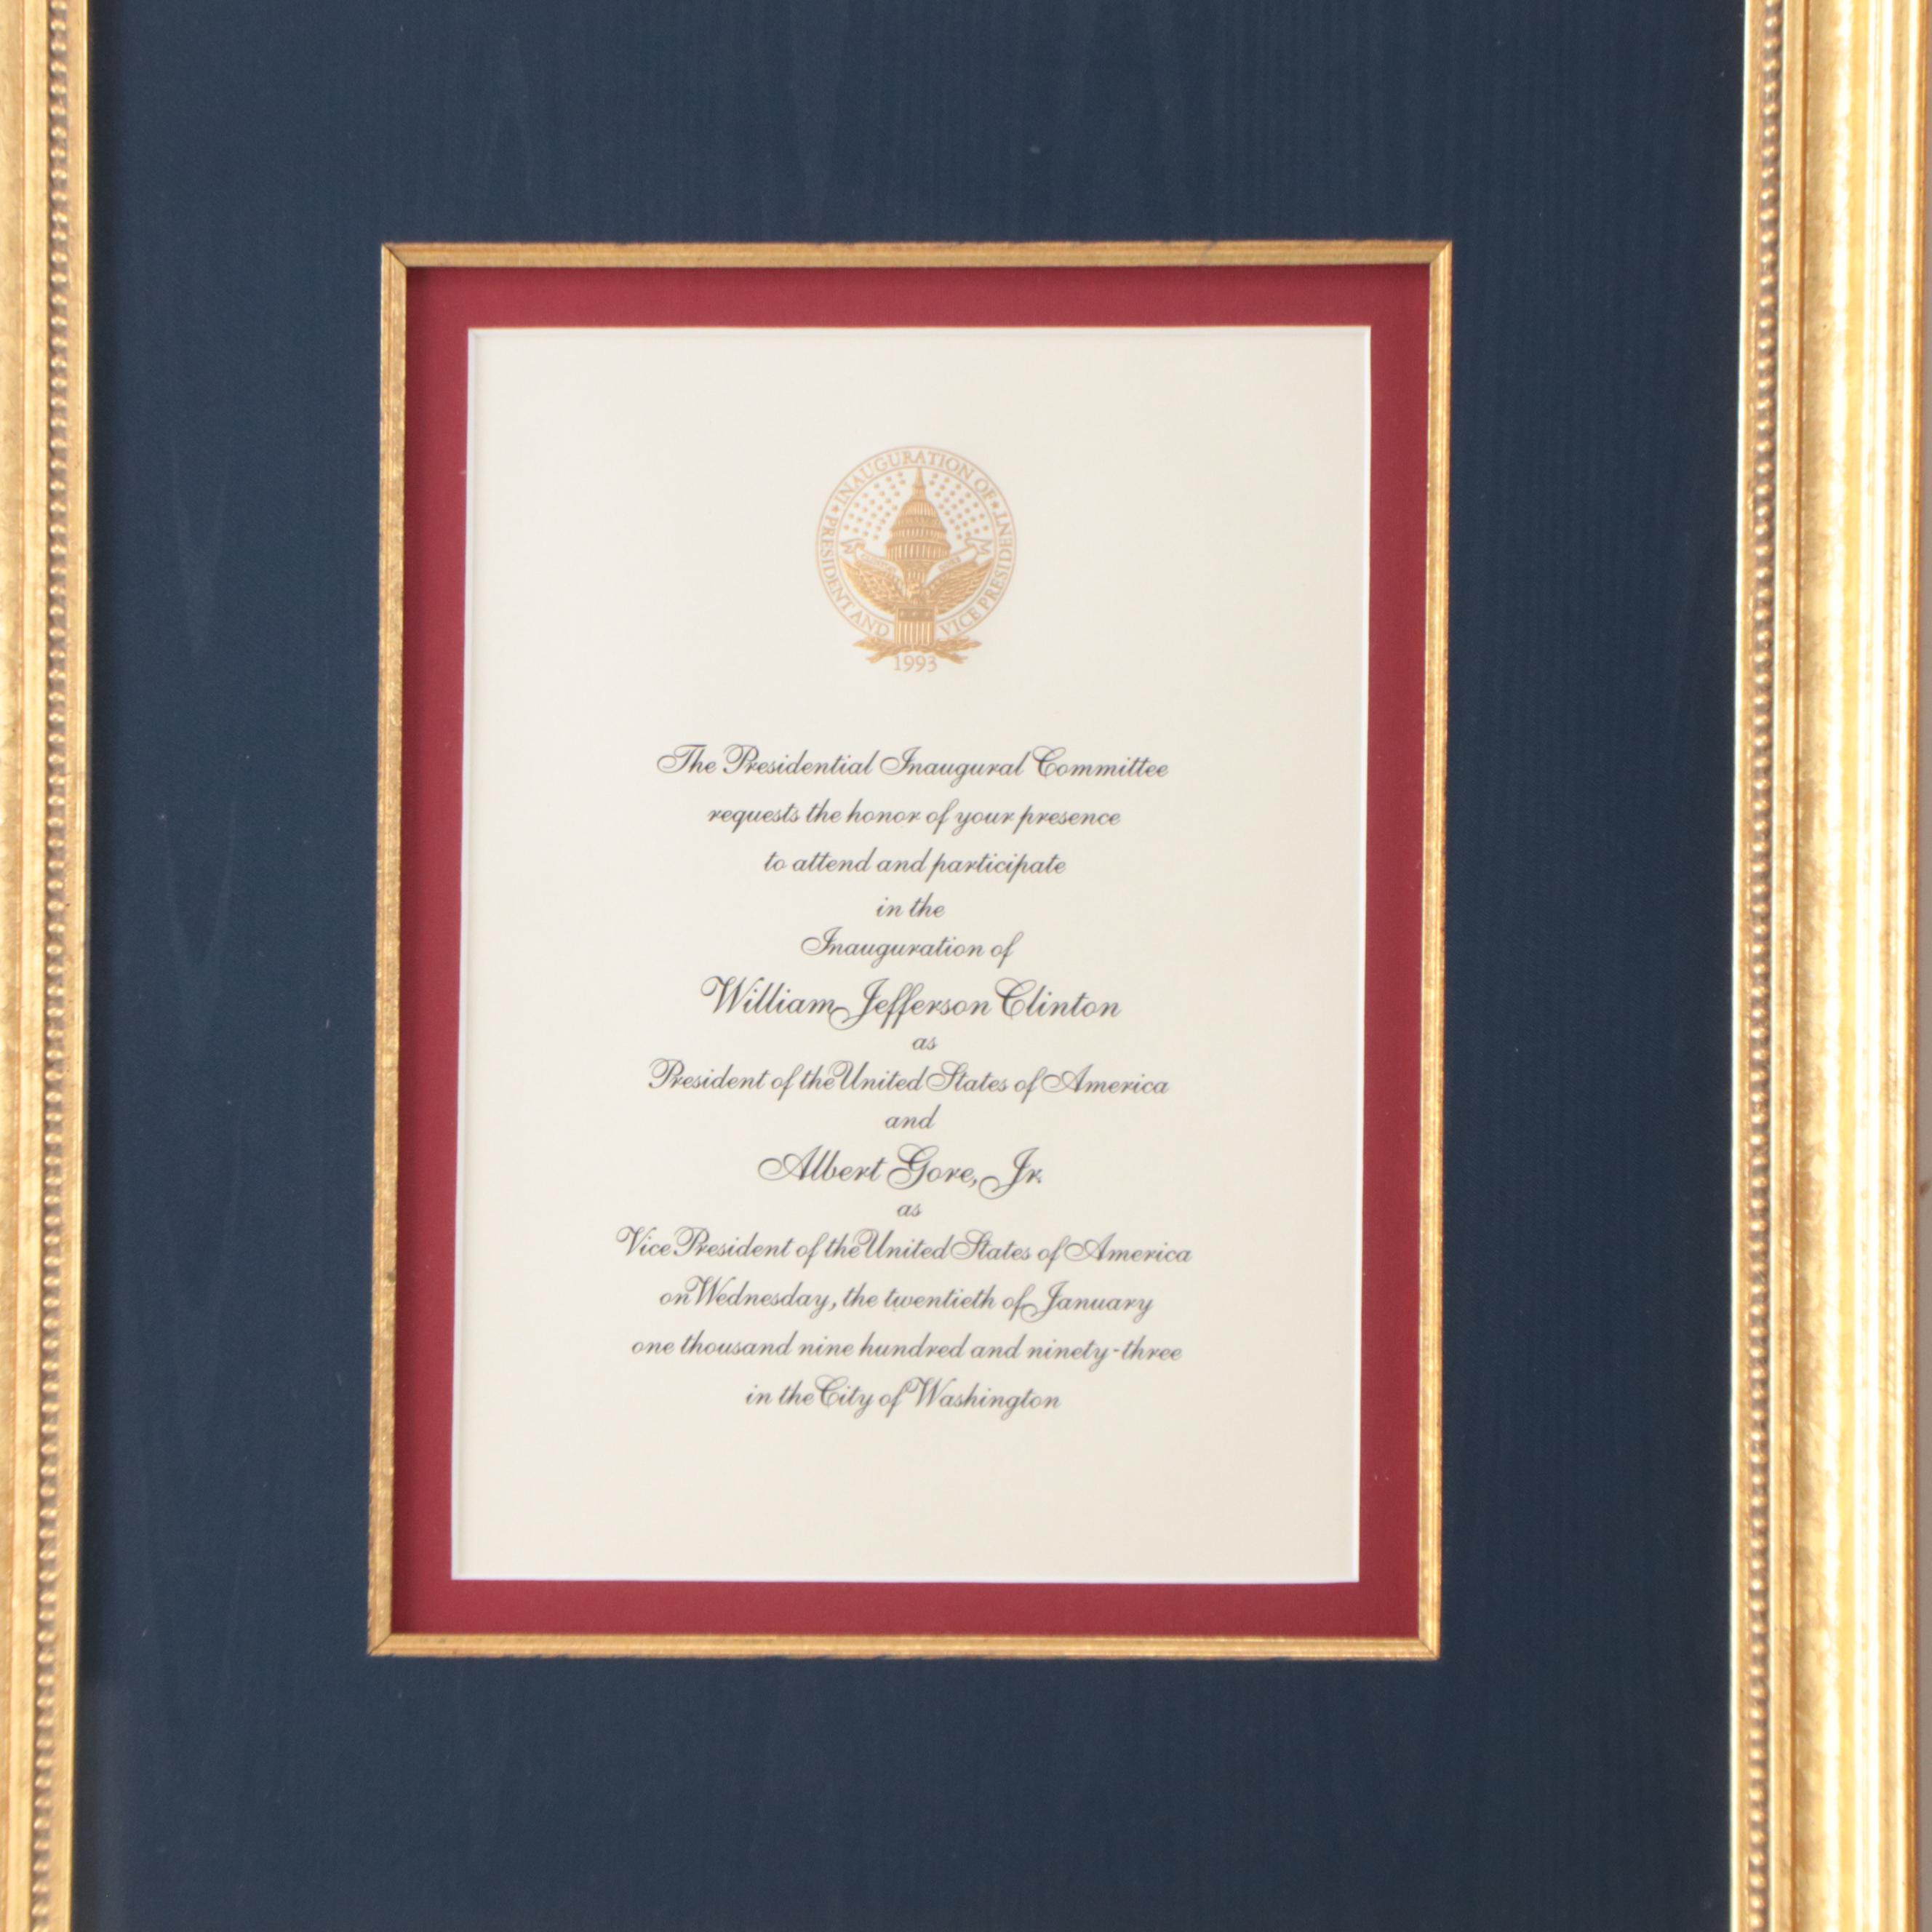 INAUGURATION OF
PRESIDENT AND VICE PRESIDENT
1993
The Presidential Inaugural Committee
requests the honor of your presence
to attend and participate
in the
Inauguration of
William Jefferson Clinton
as
President of the United States of America
and
Albert Gore, Jr.
as
Vice President of the United States of America
on Wednesday, the twentieth of January
one thousand nine hundred and ninety-three
in the City of Washington